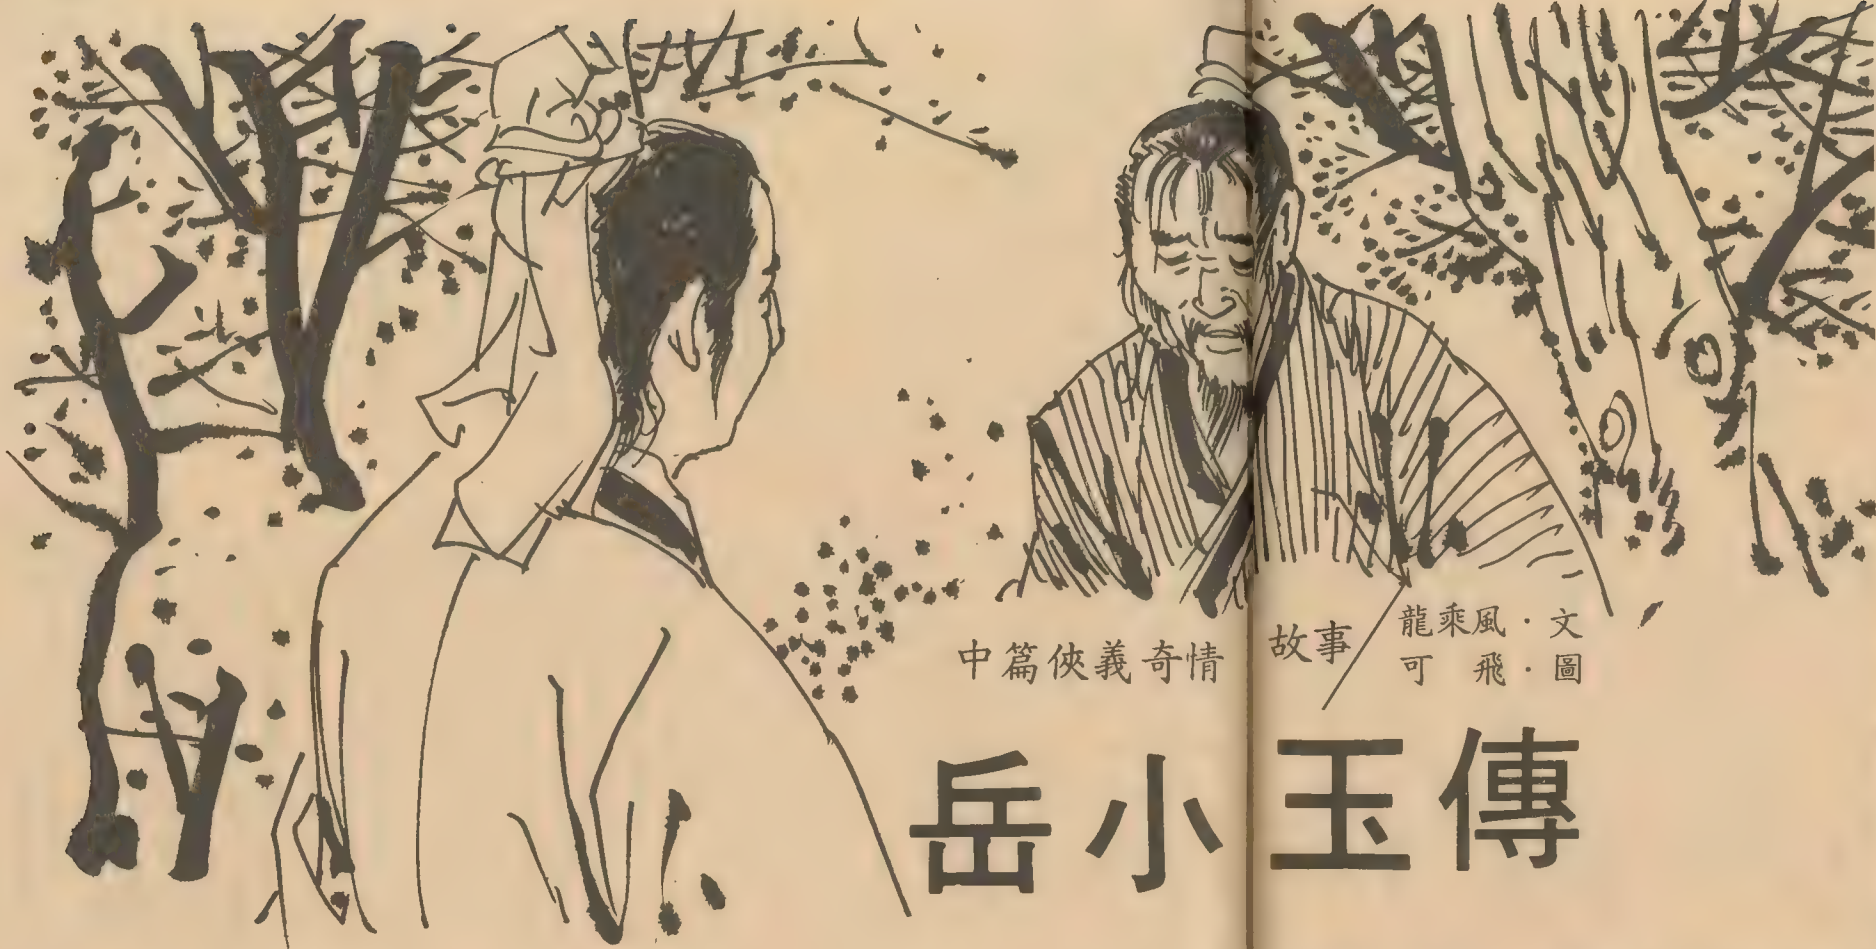 中篇俠義奇情故事
龍乘風·文
可飛·圖
岳小玉傳